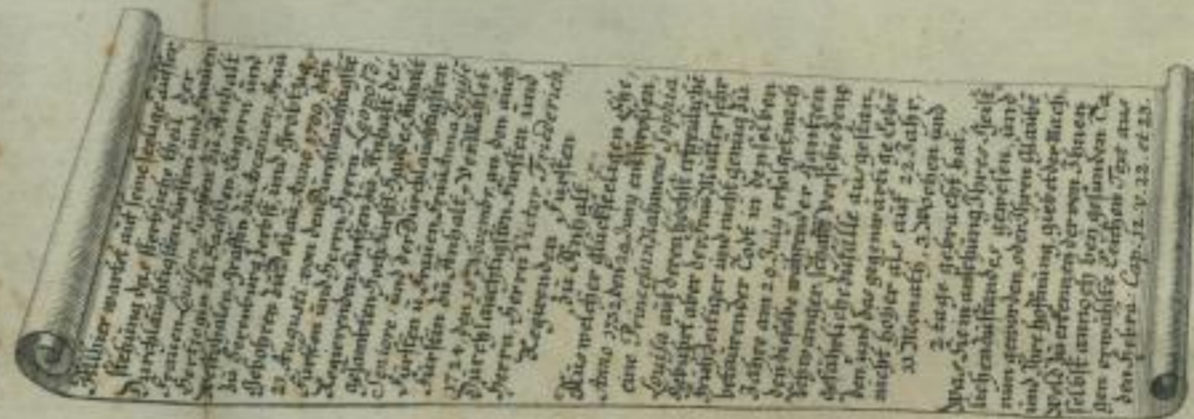 Allhier wartet auf seine seelige Auffer
stehung das sterbliche theil der
Durchläuchtigsten Fürstin und
Frauen Louisen, Fürstin zu Anhalt
Hertzogin zu Sachsen Engern und
Westphalen, Gräfin zu Ascanien, Frau
zu Bernburg und
Gebohren Anno 1709, den
21 Augusti von dem Durchläuchtigsten
Fürsten und Herrn Herrn Leopold,
Regierenden Fürsten zu Anhalt des
gesambten Fürstl. Hauses Anhalt
Seniore und der Durchläuchtigsten
Fürstin und Frauen, Frauen Anna Louise
Fürstin zu Anhalt, Vermählet
1724 den 25 Novembr. an den auch
Durchläuchtigsten Fürsten und
Herrn Herrn Victor Friederich,
Regierenden Fürsten
zu Anhalt.
Aus welcher glückseeligen Ehe,
Anno 1732 den 29 Juny
eine Princessin Nahmens Sophia
Louisa auf deren höchst erfreuliche
Gebuhrt aber der Frau Mutter sehr
der Todt in denselben
Jahre am 29 July erfolget, nach
dem dieselbe während der gantzen
Schwangerschafft verschiedene
gefährliche Zufälle ausgestan,
den und das gegenwärtige Leben
nicht höher als auf 22 Jahr,
11 Monath, 2 Wochen und
2 tage gebracht hat.
Was in ansehung Ihres Geist
lichen zustandes gewesen, und
nun geworden, oder Ihren glaube
und Ihre hoffnung
Wold zu erkennen der von Ihnen
selbst annoch bey gesunden Ta
gen erwählte Leichen Text aus
den Hebrä: Cap. 12. v. 22. et 23.